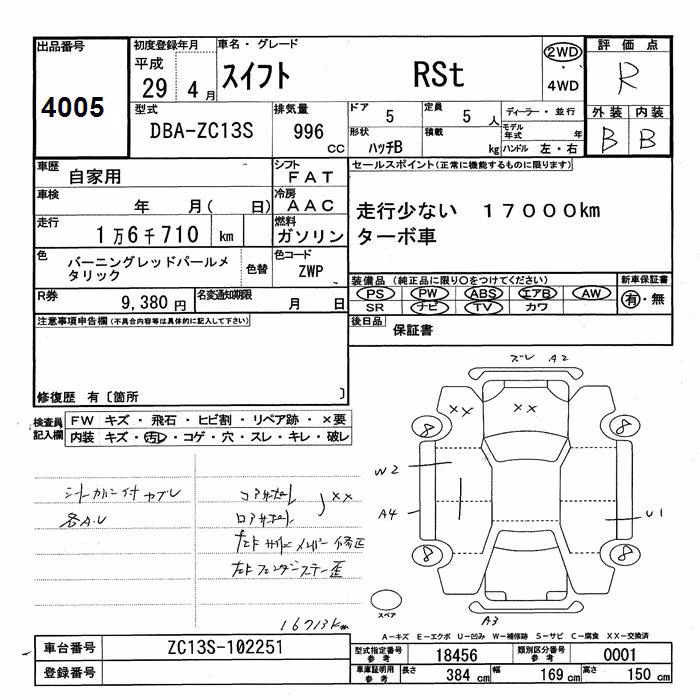 出品番号
4005
初度登録年月
平成
29年4月
車名・グレード
スイフト RSt
2WD
・
4WD
評価点
R
外装 内装
B B
型式
DBA-ZC13S
排気量
996 CC
ドア 5
定員 5人
ディーラー・並行
形状 ハッチB
積載 kg
モデル年式 年
ハンドル 左・右
車歴 自家用
シフト FAT
車検 年 月( 日)
冷房 AAC
走行 1万6千710 km
燃料 ガソリン
色 バーニングレッドパールメ
タリック
色替
色コード ZWP
R券 9,380円
名変通知期限 月 日
セールスポイント(正常に機能するものに限ります)
走行少ない 17000km
ターボ車
装備品(純正品に限り○をつけてください)
新車保証書
PS PW ABS エアB AW
有・無
SR ナビ TV カワ
後日品 保証書
注意事項申告欄(不具合内容等は具体的に記入して下さい)
修復歴 有〔箇所 〕
検査員
記入欄
FW キズ・飛石・ヒビ割・リペア跡・×要
内装 キズ・汚レ・コゲ・穴・スレ・キレ・破レ
各AU
××
16713km
ズレ A2
×× ××
8 8
W2
A4
U1
8 8
スペア
A3
A-キズ E-エクボ U-凹み W-補修跡 S-サビ C-腐食 XX-交換済
車台番号 ZC13S-102251
登録番号
型式指定番号 参考 18456
類別区分番号 参考 0001
車庫証明用 参考 長さ 384cm 幅 169cm 高さ 150cm